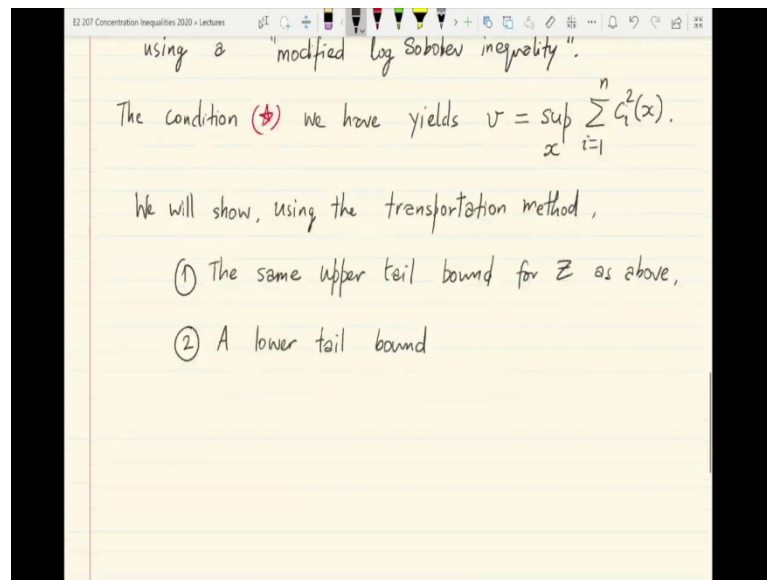 E2 207 Concentration Inequalities 2020 » Lectures
using a "modified log Sobolev inequality".
The condition (☆) we have yields v = sup_x ∑_{i=1}^{n} c_i^2(x).
We will show, using the transportation method,
① The same upper tail bound for Z as above,
② A lower tail bound